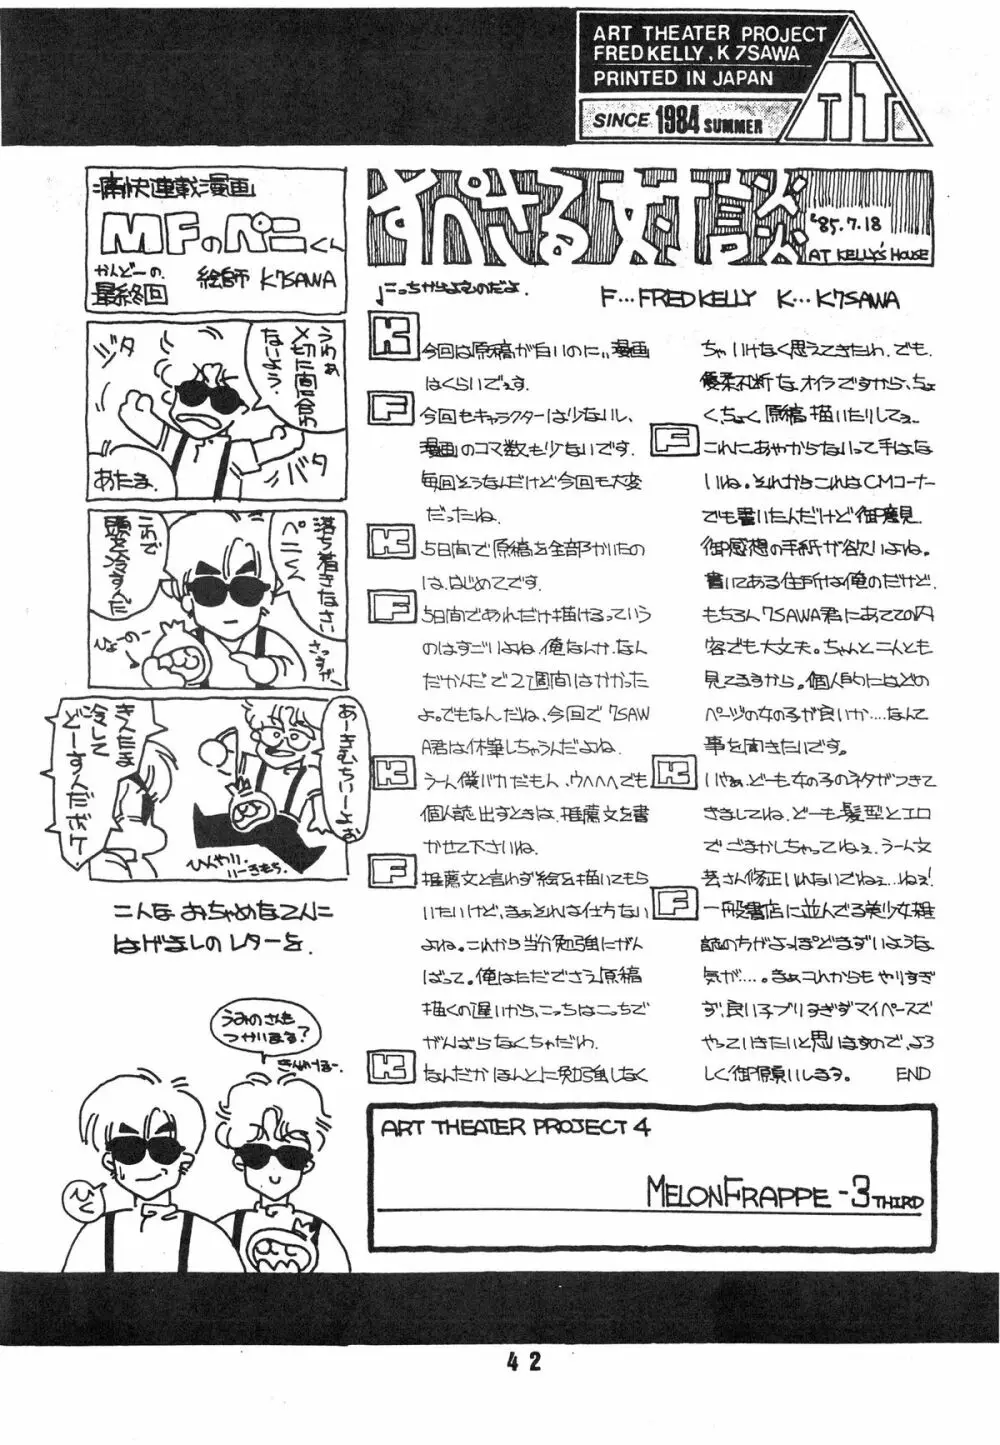 ART THEATER PROJECT
FRED KELLY, K 7SAWA
PRINTED IN JAPAN
SINCE 1984 SUMMER
痛快連載漫画
MFのペニくん
かんどーの、
最終回
絵師 K7SAWA
うわぁ
〆切に間合わ
ないよう。
ジタ
バタ
あたま。
落ち着きなさい
ペニくん
これで
頭を冷すんだ
ひょーのー
さっすがー
あーきもちいーよぉ
きんたま
冷して
どーすんだボケ。
ひんやり。
いーきもち。
こんな おちゃめなてんに
はげましのレターを。
うみのさんも
つかいます?
きんめーほー。
ひく
すぺさる対談
'85.7.18
AT KELLY'S HOUSE
こっちからよむのだよ。
F…FRED KELLY K…K7SAWA
K
今回は原稿が白いのに、漫画
はくらいでぇす。
F
今回もキャラクターは少ないし、
漫画のコマ数も少ないです。
毎回そうなんだけど今回も大変
だったね。
K
5日間で原稿を全部かいたの
は、はじめてです。
F
5日間であれだけ描けるっていう
のはすごいよね。俺なんか、なん
だかんだで2週間はかかった
よ。でもなんだね、今回で7SAW
A君は休筆しちゃうんだよね。
K
うーん僕バカだもん、ウハハハでも
個人誌出すときは、推薦文を書
かせて下さいね。
F
推薦文と言わず絵を描いてもら
いたいけど、まぁそれは仕方ない
よね。これから当分勉強にがん
ばって。俺はただでさえ原稿
描くの遅いから、こっちはこっちで
がんばらなくちゃだわ。
K
なんだかほんとに勉強しなく
ちゃいけなく思えてきたわ。でも、
優柔不断なオイラですから、ちょ
くちょく原稿描いたりしてぇ。
F
これにあやからないって手はな
いね。それからこれはCMコーナー
でも書いたんだけど御意見、
御感想の手紙が欲いよね。
書いてある住所は俺のだけど、
もちろん7SAWA君にあてての内
容でも大丈夫。ちゃんと二人とも
見てるすから。個人的にはどの
ページの女の子が良いか‥‥なんて
事を聞きたいです。
K
いやぁ、どーも女の子のネタがつきて
きましてね、どーも髪型とエロ
でごまかしちゃってねぇ。うーん文
芸さん修正いれないでねぇ…ねぇ!
F
一般書店に並んでる美少女雑
誌の方がよっぽどまずいような
気が‥‥。まぁこれからもやりすぎ
ず、良い子ブリすぎずマイペースで
やっていきたいと思いますので、よろ
しく御願いします。 END
ART THEATER PROJECT 4
MELON FRAPPE -3 THIRD
42